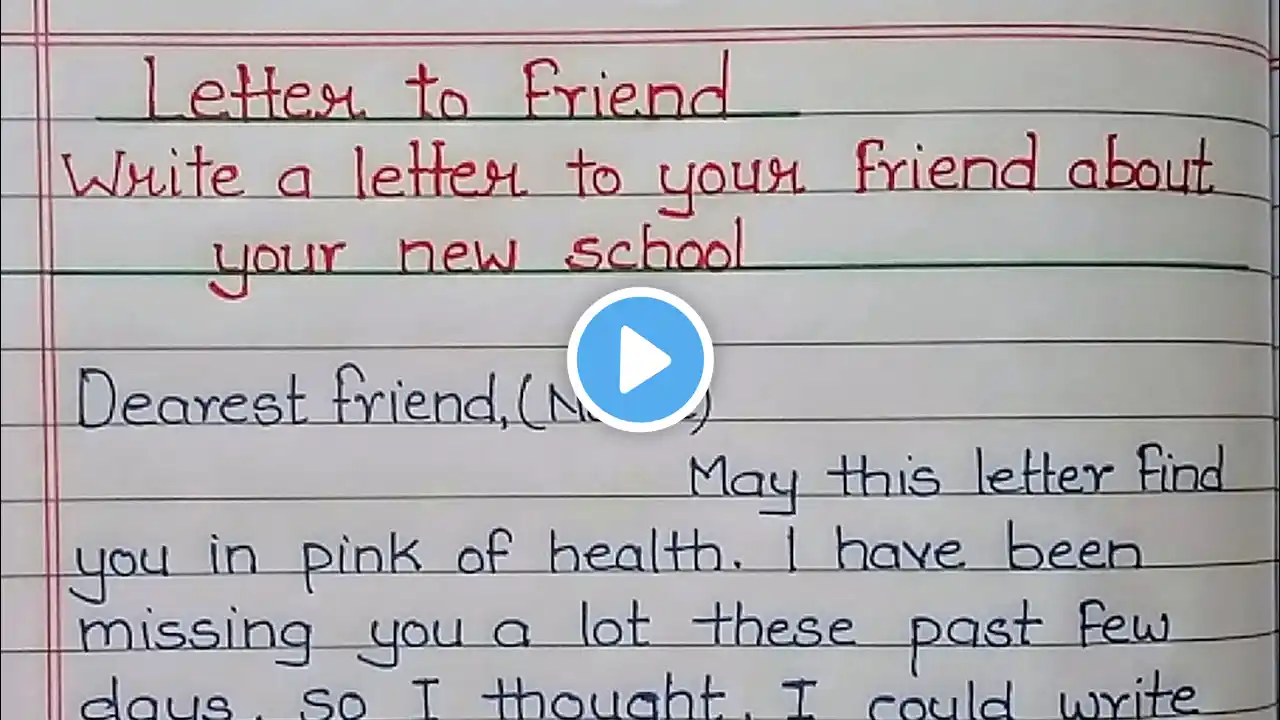 Letter to Friend
Write a letter to your friend about
your new school
Dearest friend,
May this letter find
you in pink of health. I have been
missing you a lot these past few
days, so I thought, I could write